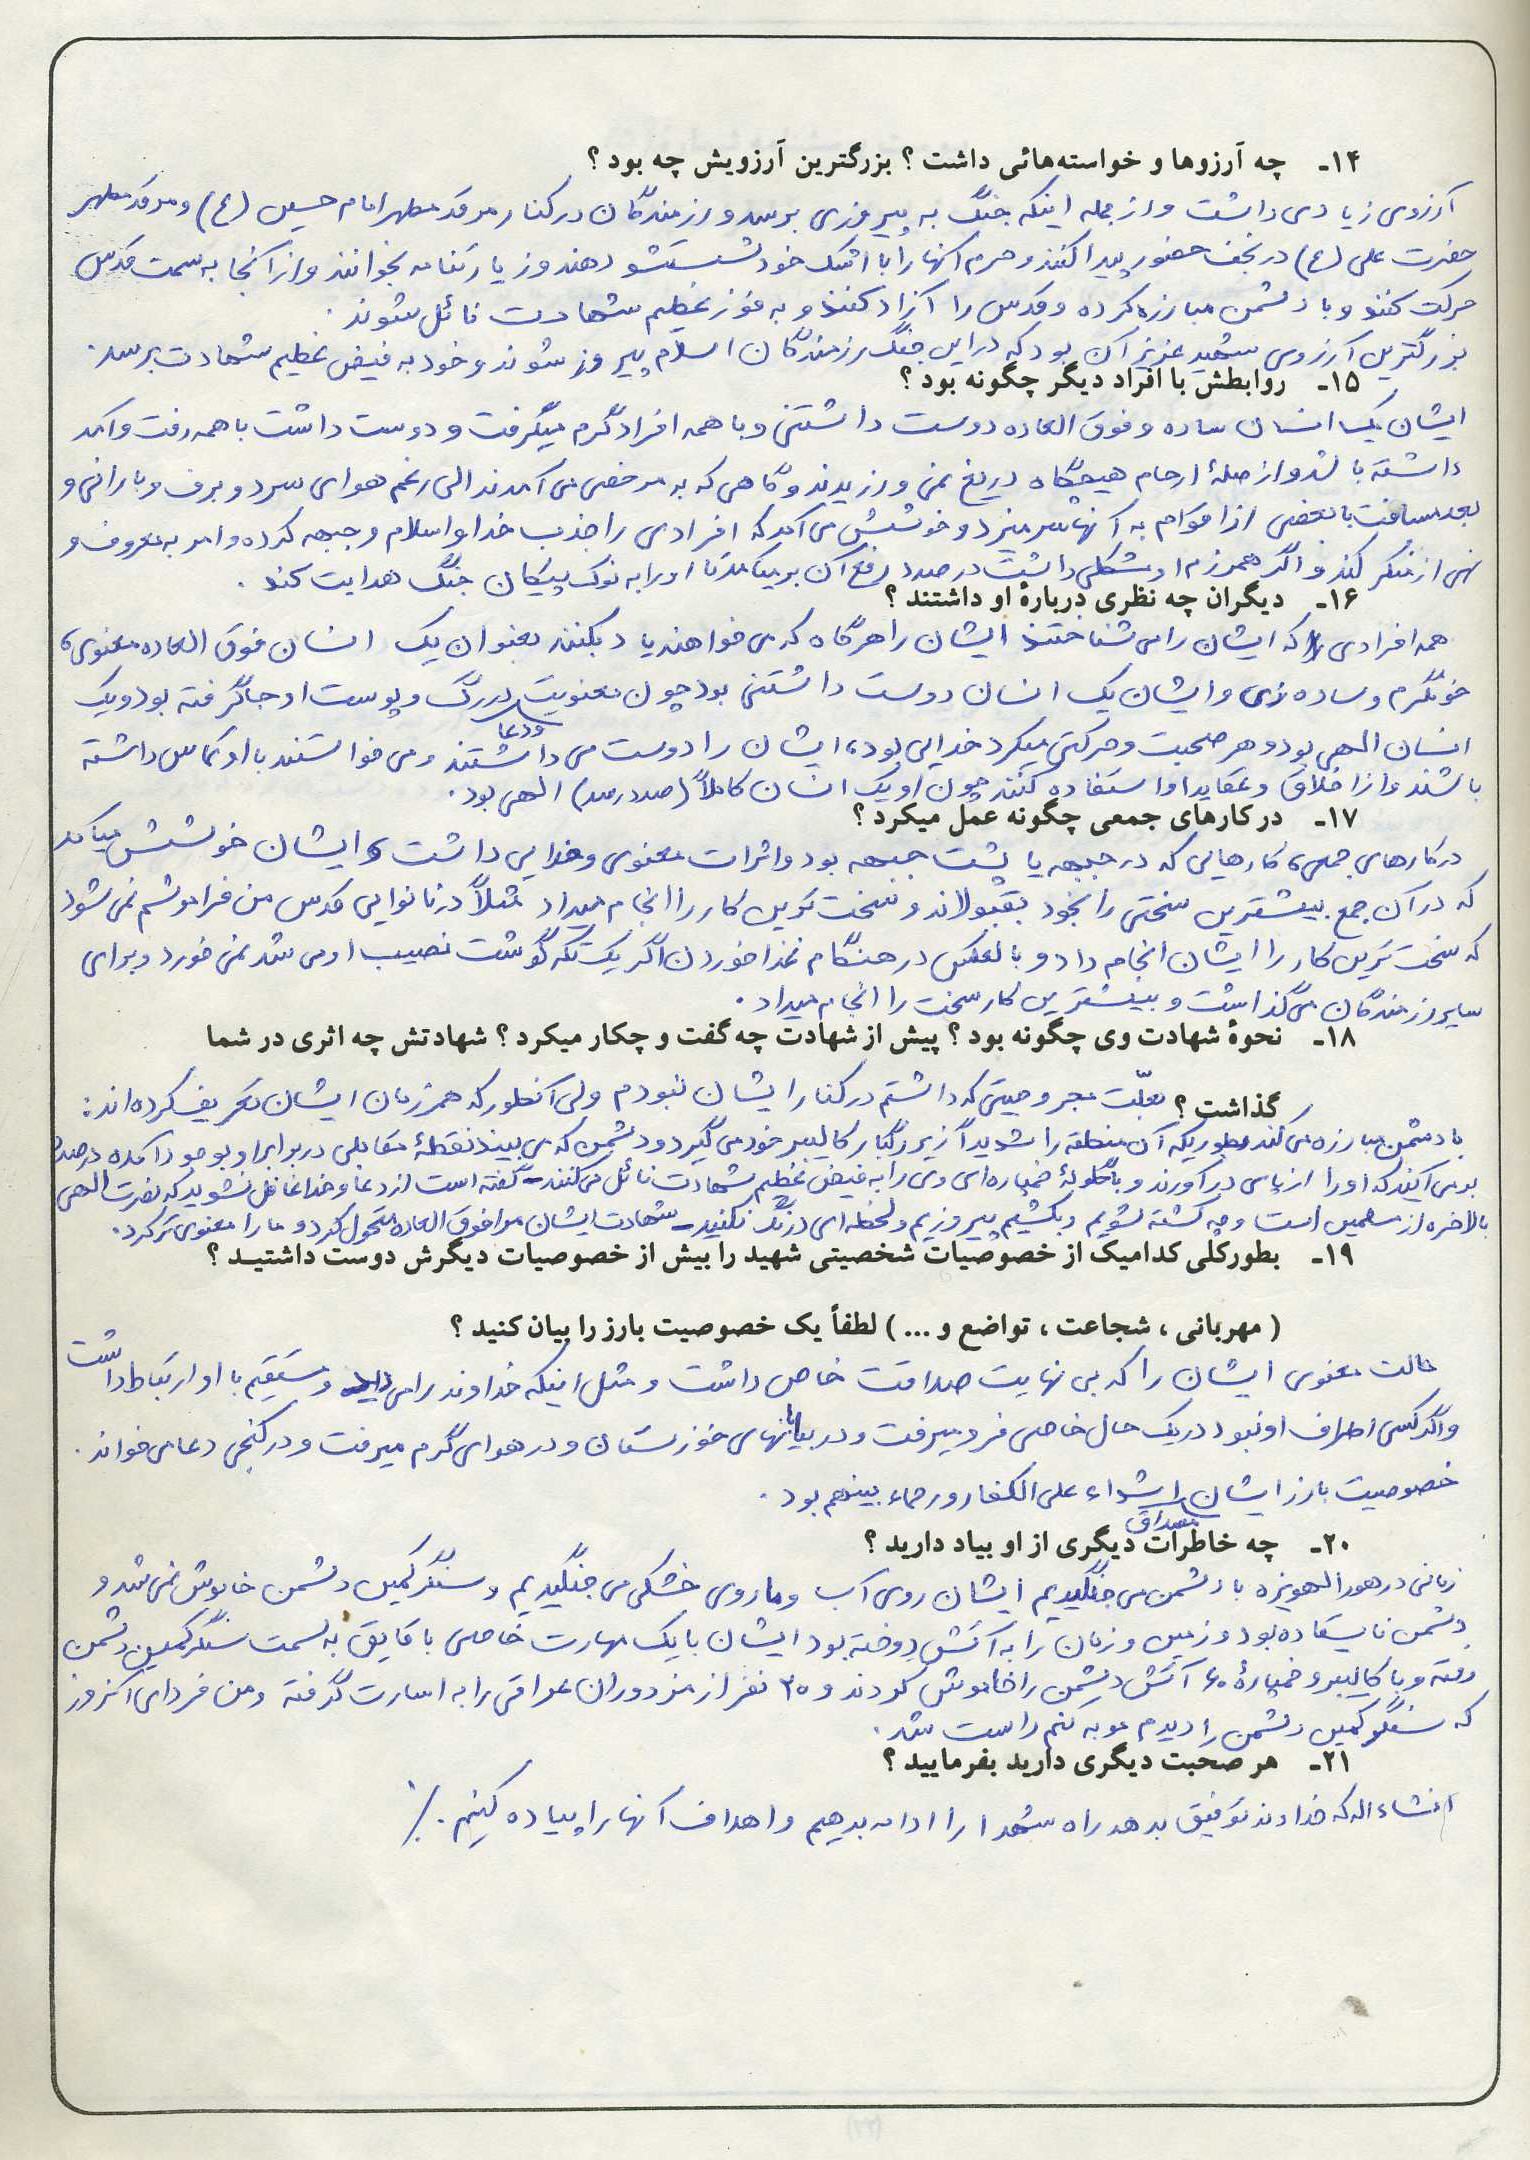 ۱۴- چه آرزوها و خواسته‌هائی داشت ؟ بزرگترین آرزویش چه بود ؟
آرزوی زیادی داشت و از جمله اینکه جنگ به پیروزی برسد و رزمندگان در کنار مرقد مطهر امام حسین (ع) و مرقد مطهر
حضرت علی (ع) در نجف حضور پیدا کنند و حرم آنها را با اشک خود شستشو دهند و زیارتنامه بخوانند و از آنجا به سمت قدس
حرکت کنند و با دشمن مبارزه کرده و قدس را آزاد کنند و به فوز عظیم شهادت نائل شوند .
بزرگترین آرزوی شهید عزیز آن بود که در این جنگ رزمندگان اسلام پیروز شوند و خود به فیض عظیم شهادت برسد .
۱۵- روابطش با افراد دیگر چگونه بود ؟
ایشان یک انسان ساده و فوق العاده دوست داشتنی و با همه افراد گرم میگرفت و دوست داشت با همه رفت و آمد
داشته باشد و از صلهٔ ارحام هیچگاه دریغ نمی ورزیدند و گاهی که به مرخصی می آمدند الی رغم هوای سرد و برف و بارانی و
بعد مسافت با بعضی از اقوام به آنها سر میزد و خوشش می آمد که افرادی را جذب خدا و اسلام و جبهه کرده و امر به معروف و
نهی از منکر کند و اگر همرزم او مشکلی داشت در صدد رفع آن بر میآمد تا او را به نوک پیکان جنگ هدایت کند .
۱۶- دیگران چه نظری دربارهٔ او داشتند ؟
همه افرادی که ایشان را می شناختند ایشان را هرگاه که می خواهند یاد بکنند بعنوان یک انسان فوق العاده معنوی ،
خونگرم و ساده زی و ایشان یک انسان دوست داشتنی بود چون معنویت در رگ و پوست او جا گرفته بود و یک
انسان الهی بود و هر صحبت و حرکتی میکرد خدایی بود ، ایشان را دوست می داشتند و می خواستند با او تماس داشته
ودعا
باشند و از اخلاق و عقاید او استفاده کنند چون او یک انسان کاملاً (صددرصد) الهی بود .
۱۷- در کارهای جمعی چگونه عمل میکرد ؟
در کارهای جمعی ، کارهایی که در جبهه یا پشت جبهه بود و اثرات معنوی و خدایی داشت ، ایشان خوشش میآمد
که در آن جمع بیشترین سختی را بخود بقبولاند و سخت ترین کار را انجام میداد مثلاً در نانوایی قدس من فراموشم نمی شود
که سخت ترین کار را ایشان انجام داد و بالعکس در هنگام غذا خوردن اگر یک تکه گوشت نصیب او می شد نمی خورد و برای
سایر رزمندگان می گذاشت و بیشترین کار سخت را انجام میداد .
۱۸- نحوهٔ شهادت وی چگونه بود ؟ پیش از شهادت چه گفت و چکار میکرد ؟ شهادتش چه اثری در شما
گذاشت ؟ بعلّت مجروحیتی که داشتم در کنار ایشان نبودم ولی آنطور که همرزمان ایشان تعریف کرده اند :
با دشمن مبارزه می کند بطوریکه آن منطقه را شدیداً زیر رگبار کالیبر خود می گیرد و دشمن که می بیند نقطهٔ مقابلی در برابر او بوجود آمده درصدد
بر می آیند که او را از پای در آورند و با گلولهٔ خمپاره ای وی را به فیض عظیم شهادت نائل می کنند - گفته است از دعا و خدا غافل نشوید که نصرت الهی
بالاخره از مسلمین است و چه کشته شویم و بکشیم پیروزیم و لحظه ای درنگ نکنید - شهادت ایشان مرا فوق العاده متحول کرد و ما را معنوی تر کرد .
۱۹- بطورکلی کدامیک از خصوصیات شخصیتی شهید را بیش از خصوصیات دیگرش دوست داشتید ؟
( مهربانی ، شجاعت ، تواضع و ... ) لطفاً یک خصوصیت بارز را بیان کنید ؟
حالت معنوی ایشان را که بی نهایت صداقت خاص داشت و مثل اینکه خداوند را می دید و مستقیم با او ارتباط داشت
و اگر کسی اطراف او نبود در یک حال خاصی فرو میرفت و در بیابانهای خوزستان و در هوای گرم میرفت و در کنجی دعا می خواند .
خصوصیت بارز ایشان اشداء علی الکفار و رحماء بینهم بود .
مصداق
۲۰- چه خاطرات دیگری از او بیاد دارید ؟
زمانی در هورالهویزه با دشمن می جنگیدیم ایشان روی آب و ما روی خشکی می جنگیدیم و سنگر کمین دشمن خاموش نمی شد و
دشمن نایستاده بود و زمین و زمان را به آتش دوخته بود ایشان با یک مهارت خاصی با قایق به سمت سنگر کمین دشمن
رفته و با کالیبر و خمپارهٔ ۶۰ آتش دشمن را خاموش کردند و ۲۰ نفر از مزدوران عراقی را به اسارت گرفته و من فردای آنروز
که سنگر کمین دشمن را دیدم مو به تنم راست شد .
۲۱- هر صحبت دیگری دارید بفرمایید ؟
انشاءاله که خداوند توفیق بدهد راه شهدا را ادامه بدهیم و اهداف آنها را پیاده کنیم ./